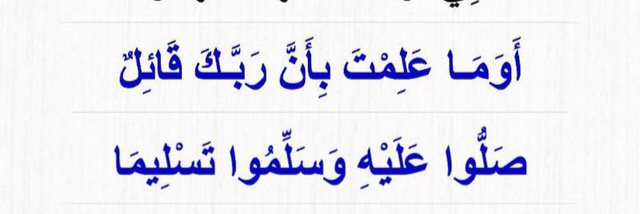 أَوَمَـا عَلِمْتَ بِأَنَّ رَبَّـكَ قَائِلٌ
صَلُّوا عَلَيْهِ وَسَلِّمُوا تَسْلِيمَا